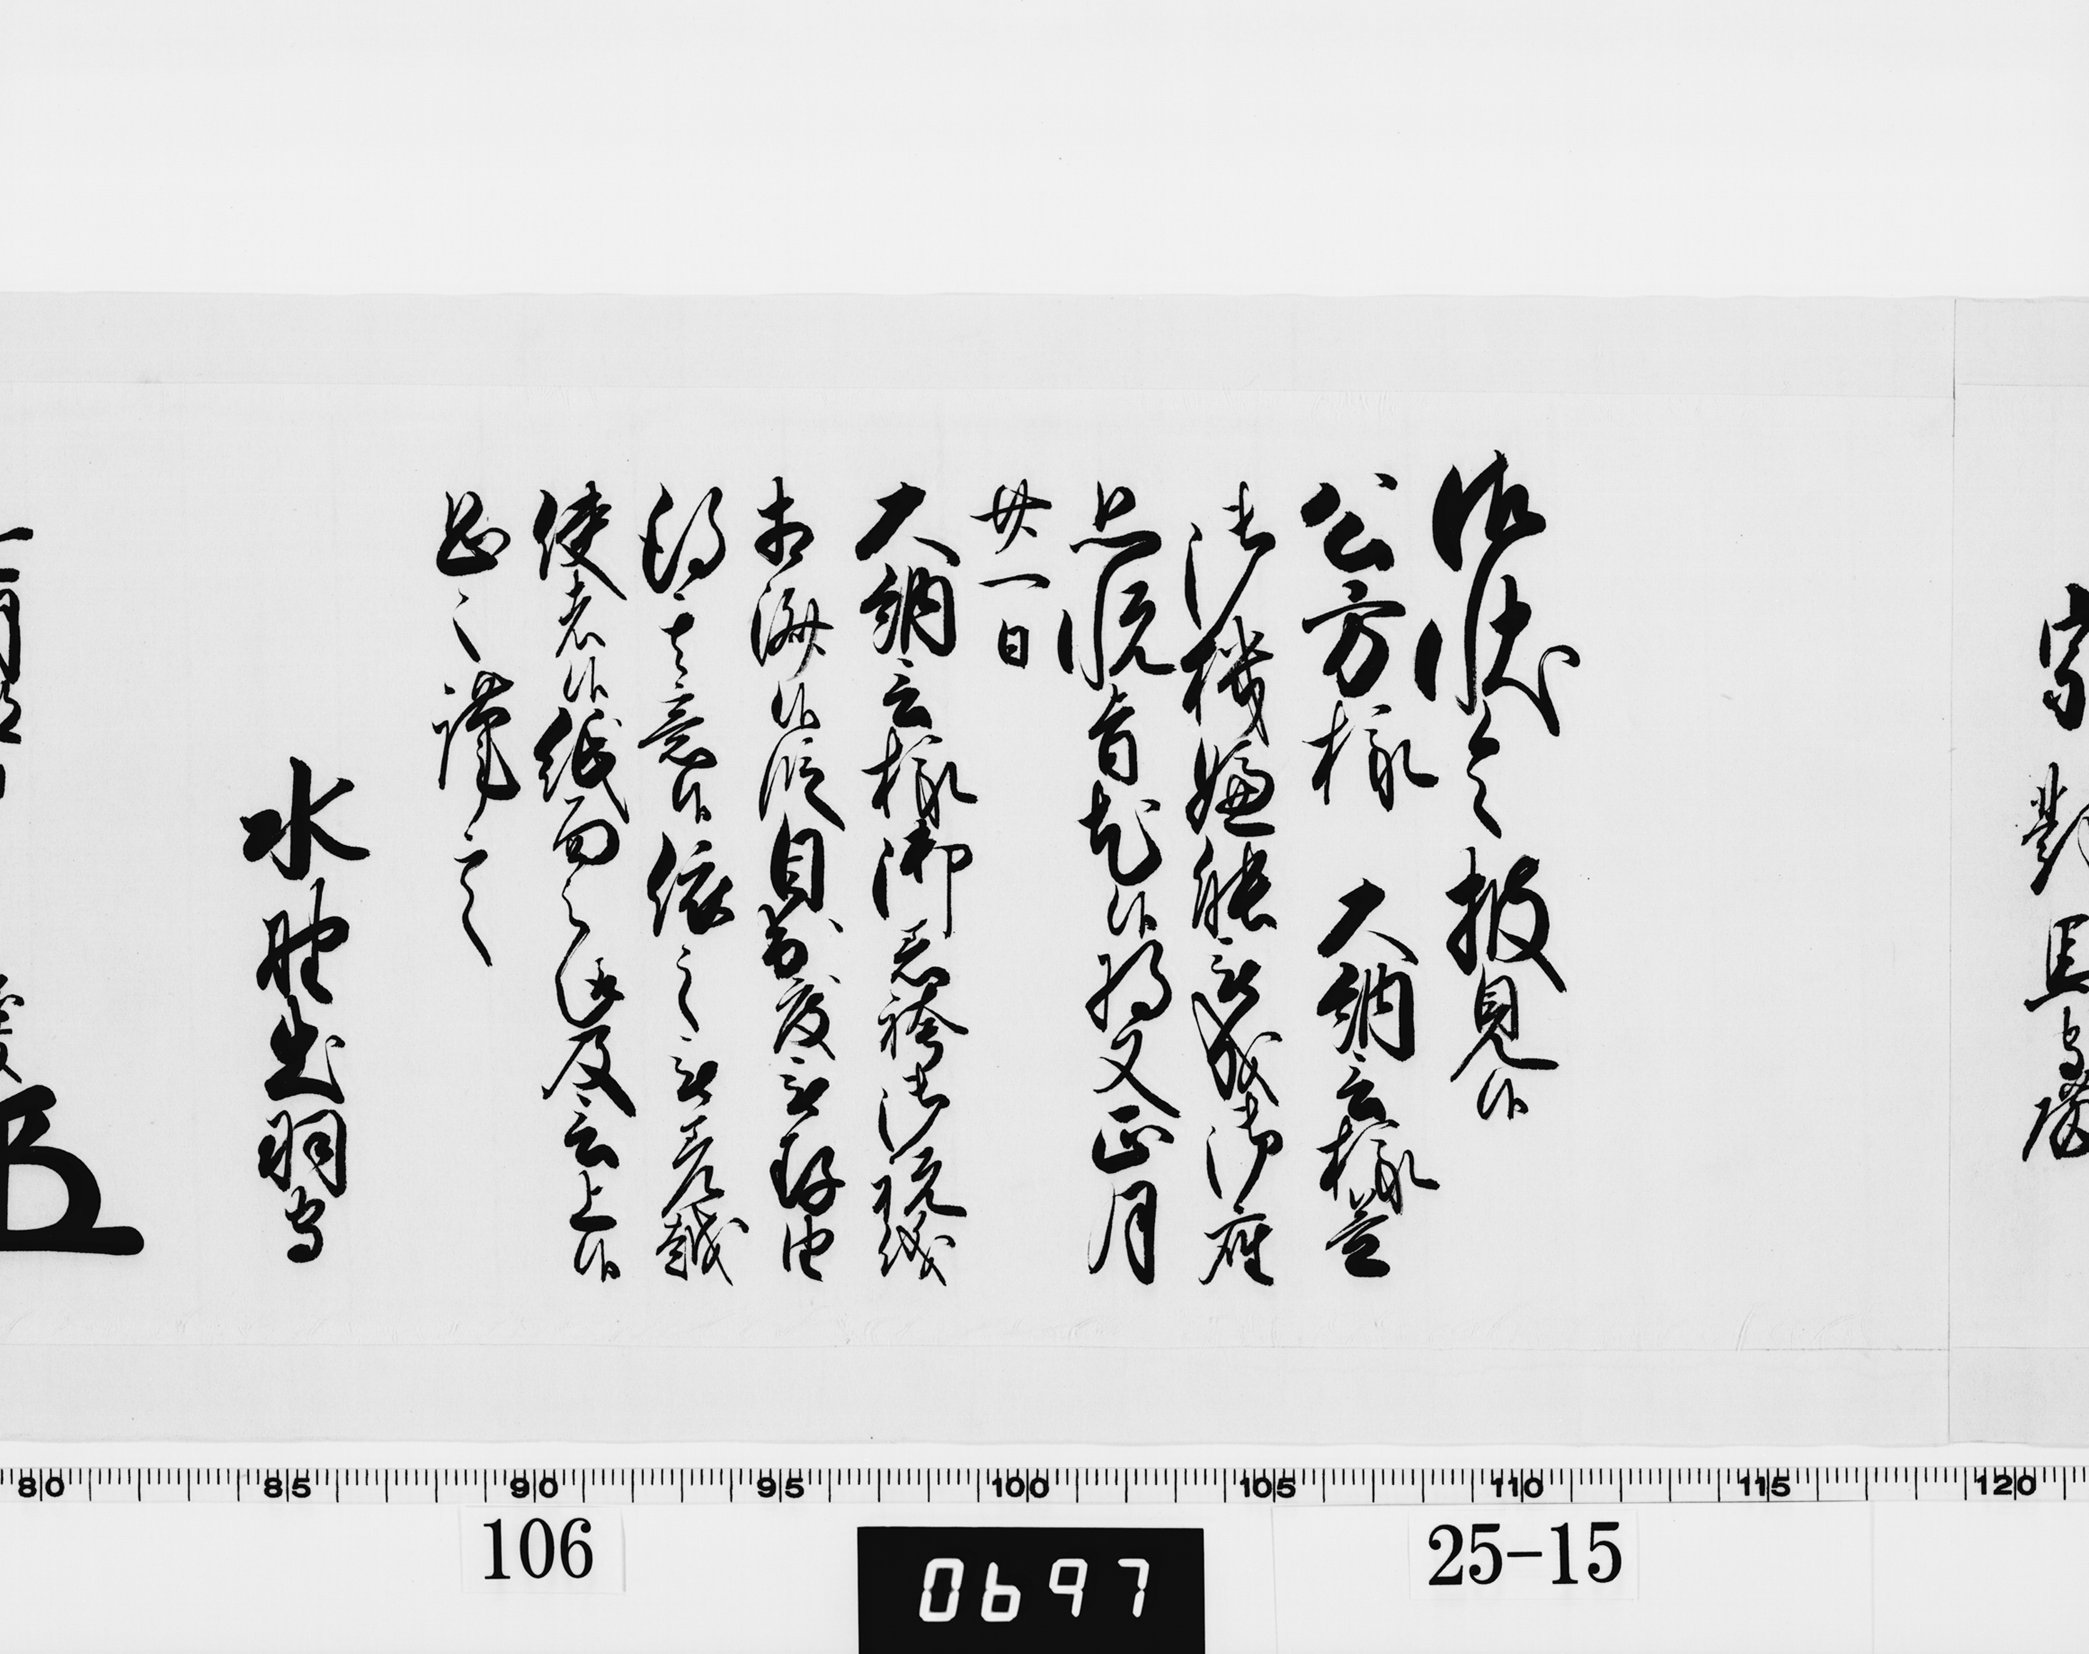 宗對馬守殿
御状令披見候
公方様　大納言様益
御機嫌能被成御座
恐悦旨尤候将又正月
廿一日
大納言様御着袴御祝儀
相済候段目出度被存由
得其意候依之被差越
使者候紙面之趣及言上候
恐々謹言
水野出羽守
106
0697
25-15
80 85 90 95 100 105 110 115 120